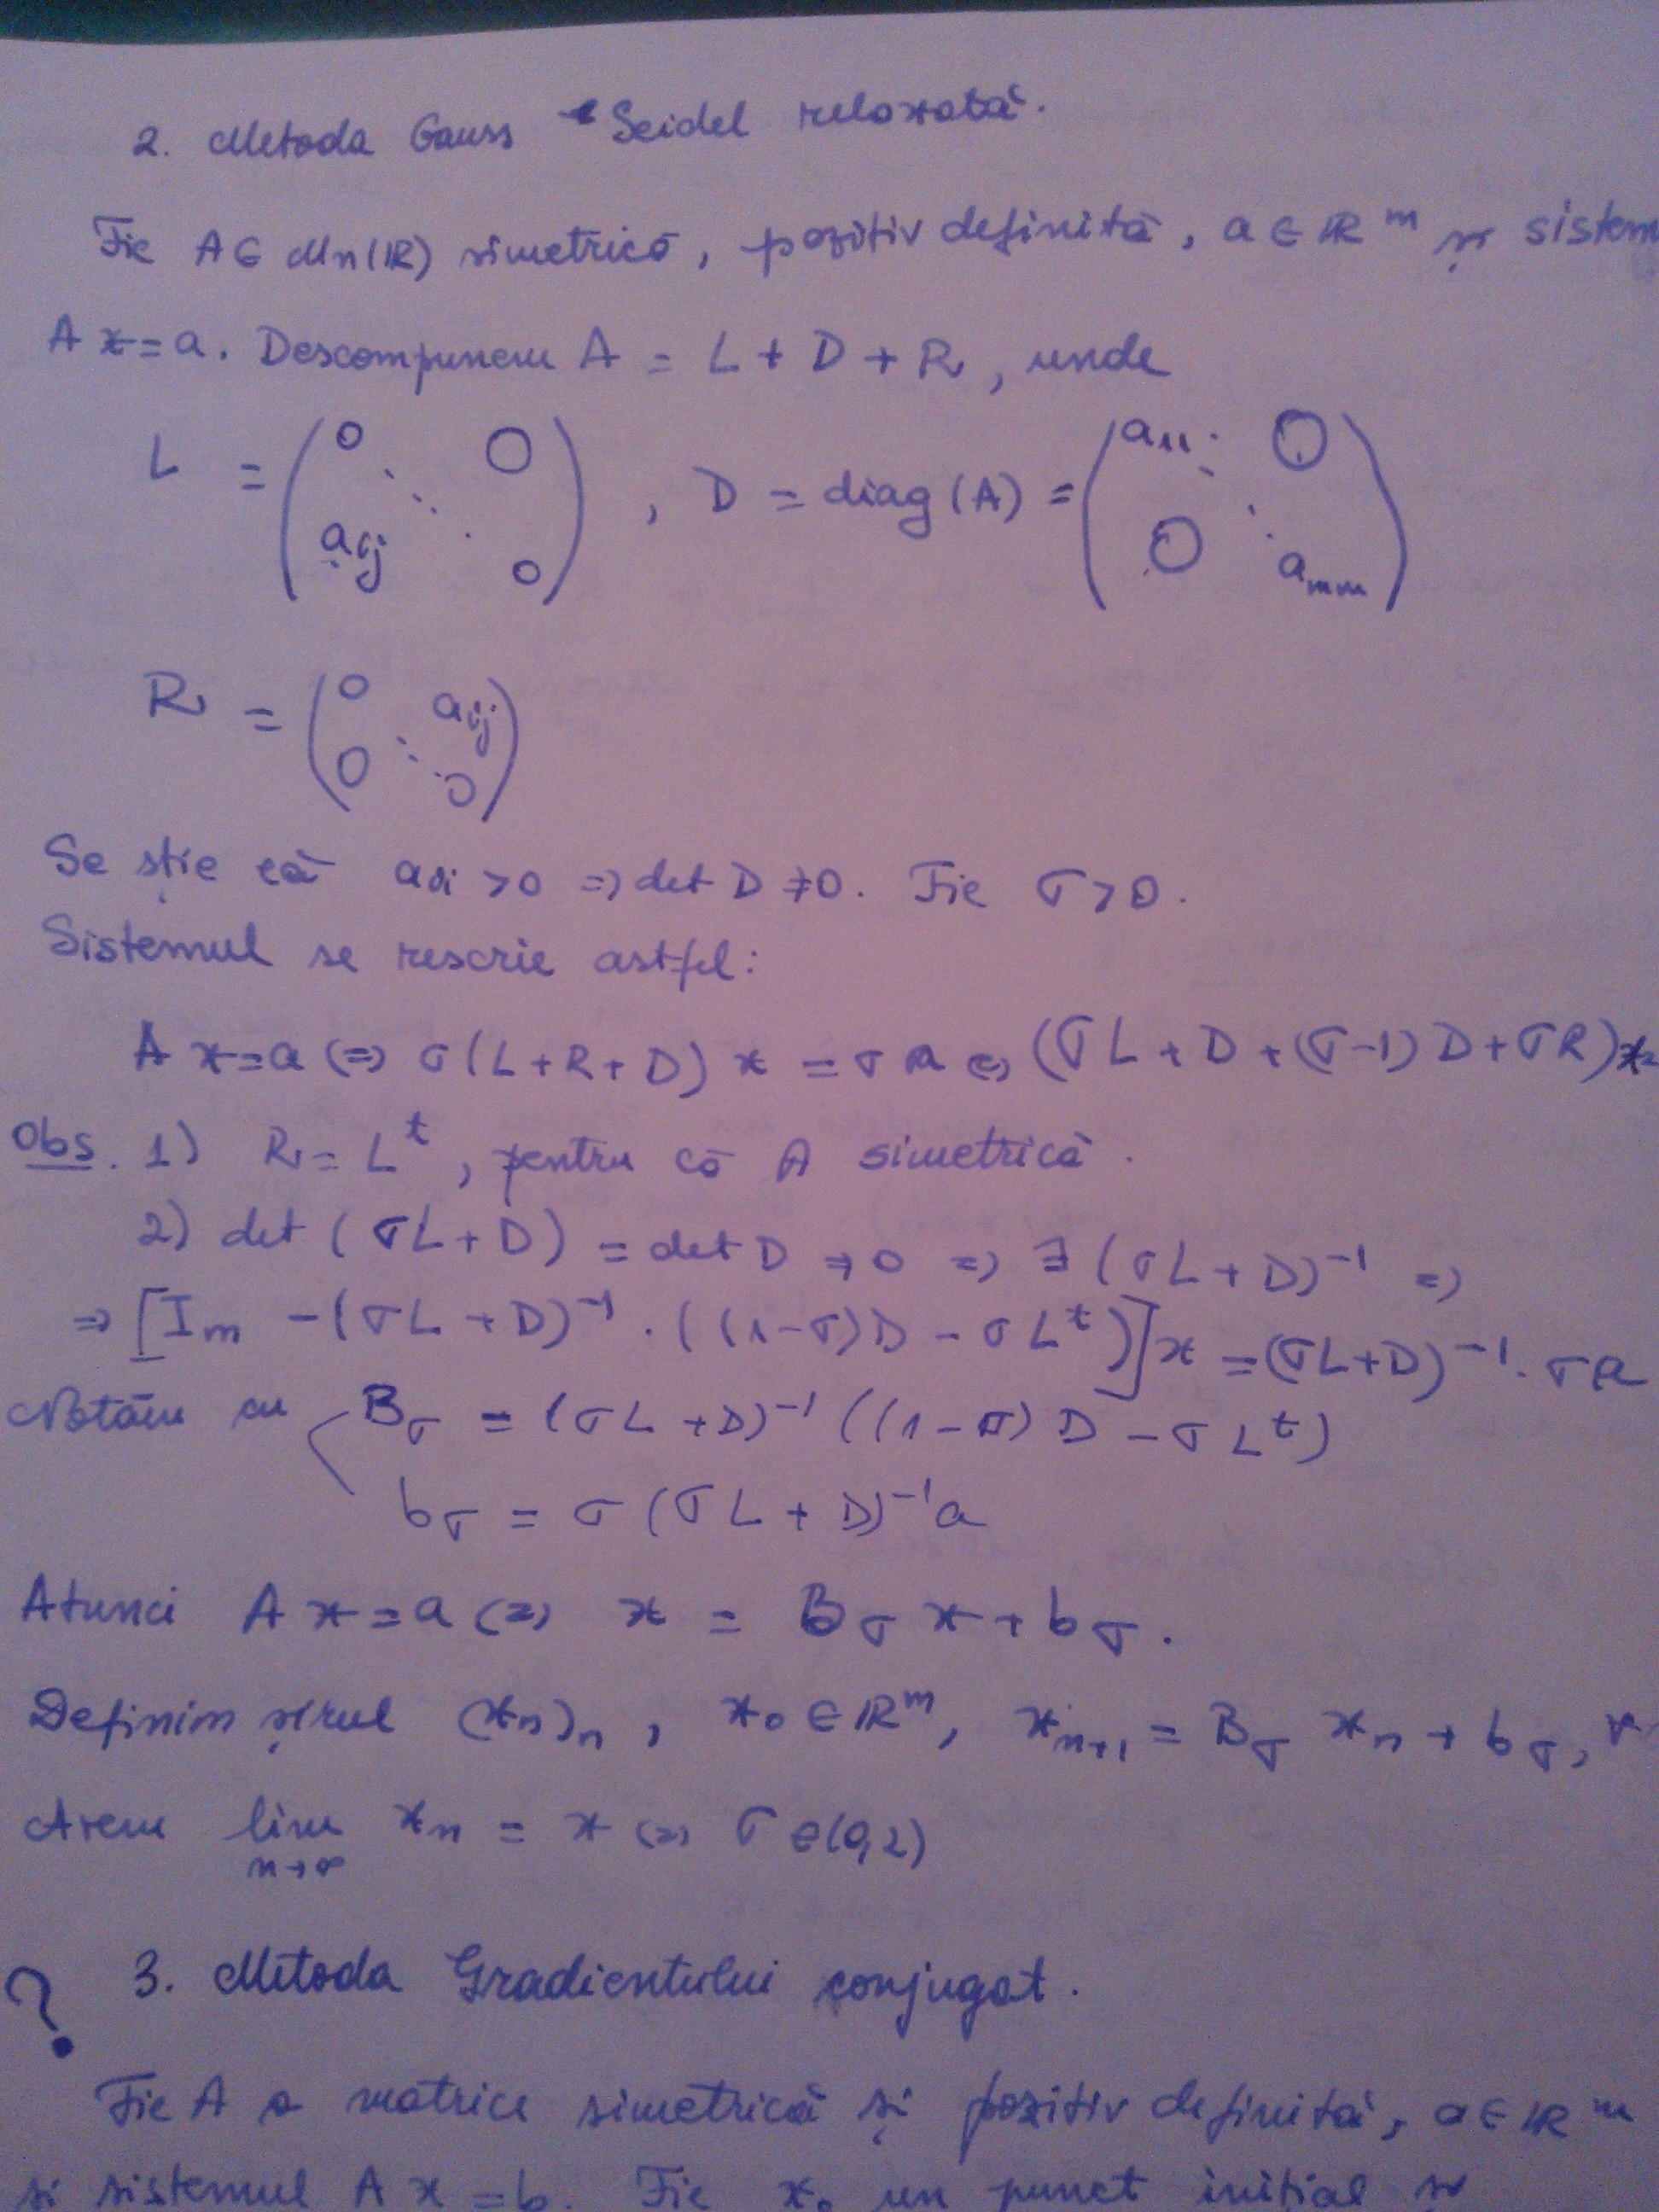 2. Metoda Gauss - Seidel relaxată.
Fie A ∈ Mn(ℝ) simetrică, pozitiv definită, a ∈ ℝ^m și sistem
A x = a. Descompunem A = L + D + R, unde
L = (0 ⋱ 0 aij 0), D = diag(A) = (a11 ⋱ 0 0 amm)
R = (0 aij 0 ⋱ 0)
Se știe că aii > 0 => det D ≠ 0. Fie σ > 0.
Sistemul se rescrie astfel:
A x = a <=> σ(L + R + D) x = σ a <=> (σL + D + (σ-1) D + σR) x =
Obs. 1) R = L^t, pentru că A simetrică.
2) det (σL + D) = det D ≠ 0 => ∃ (σL + D)^-1 =>
=> [Im - (σL + D)^-1 · ((1-σ)D - σL^t)] x = (σL+D)^-1 · σa
Notăm cu { Bσ = (σL + D)^-1 ((1-σ) D - σL^t)
bσ = σ (σL + D)^-1 a
Atunci A x = a <=> x = Bσ x + bσ.
Definim șirul (xn)n, x0 ∈ ℝ^m, xn+1 = Bσ xn + bσ,
Avem lim n→∞ xn = x <=> σ ∈ (0,2)
? 3. Metoda Gradientului conjugat.
Fie A o matrice simetrică și pozitiv definită, a ∈ ℝ^m
si sistemul A x = b. Fie x0 un punct inițial și